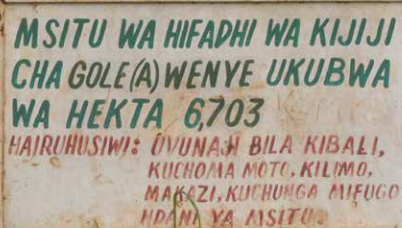 MSITU WA HIFADHI WA KIJIJI
CHA GOLE(A) WENYE UKUBWA
WA HEKTA 6,703
HAIRUHUSIWI: UVUNAJI BILA KIBALI,
KUCHOMA MOTO, KILIMO,
MAKAZI, KUCHUNGA MIFUGO
NDANI YA MSITU.